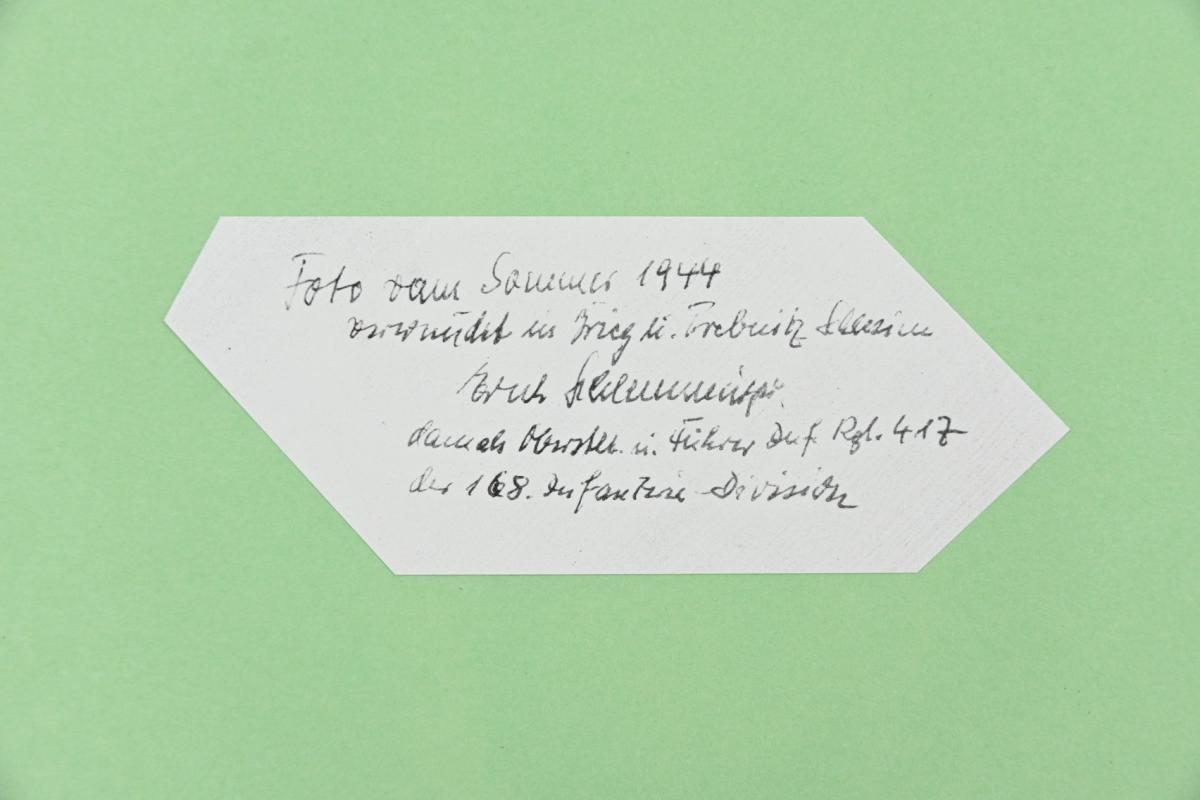 Foto vom Sommer 1944
verwundet in Brieg u. Trebnitz Schlesien
Erich
damals Oberstlt. u. Führer Inf. Rgt. 417
der 168. Infanterie-Division